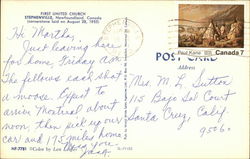 FIRST UNITED CHURCH
STEPHENVILLE, Newfoundland, Canada
(cornerstone laid on August 28, 1955)
Hi Martha,
Just leaving here
for home, Friday am.
The fellows each shot
a moose. Expect to
arrive Montreal about
noon, then pick up our
car and 175 miles home.
Jack
POST CARD
Address
Paul Kane
CANADA 7
Mrs. M L Sutton
115 Bajo Sol Court
Santa Cruz, Calif.
95061